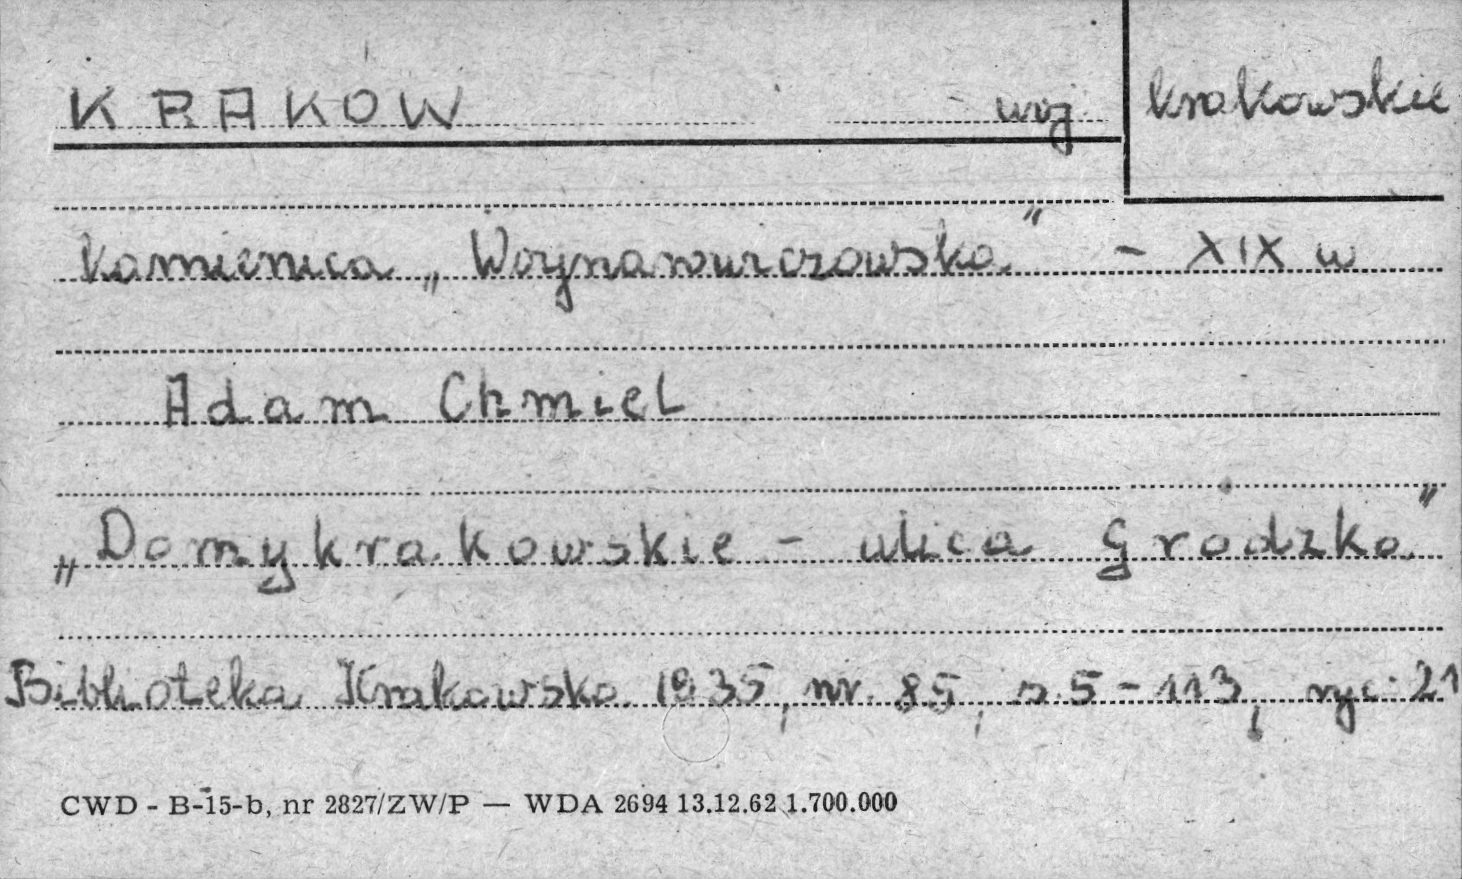 KRAKOW woj. krakowskie
Kamienica „Woynarowiczowska" - XIX w
Adam Chmiel
„Domy krakowskie - ulica Grodzka"
Biblioteka Krakowska 1935, nr. 85, s. 5-113, ryc. 21
CWD - B-15-b, nr 2827/ZW/P — WDA 2694 13.12.62 1.700.000